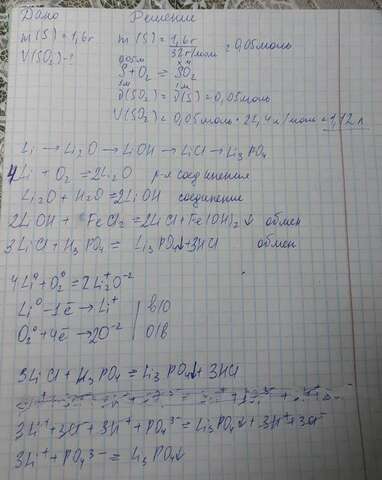 Дано
Решение
m(S)=1,6г
V(SO₂)-?
m(S)=1,6г/32г/моль=0,05моль
0,05м xм
S+O₂=SO₂
1м 1м
ν(SO₂)=ν(S)=0,05моль
V(SO₂)=0,05моль·22,4л/моль=1,12л
Li→Li₂O→LiOH→LiCl→Li₃PO₄
4Li+O₂=2Li₂O р-я соединения
Li₂O+H₂O=2LiOH соединение
2LiOH+FeCl₂=2LiCl+Fe(OH)₂↓ обмен
3LiCl+H₃PO₄=Li₃PO₄↓+3HCl обмен
4Li⁰+O₂⁰=2Li₂⁺O⁻²
Li⁰-1ē→Li⁺ | в/о
O₂⁰+4ē→2O⁻² | о/в
3LiCl+H₃PO₄=Li₃PO₄↓+3HCl
3Li⁺+3Cl⁻+3H⁺+PO₄³⁻=Li₃PO₄↓+3H⁺+3Cl⁻
3Li⁺+PO₄³⁻=Li₃PO₄↓